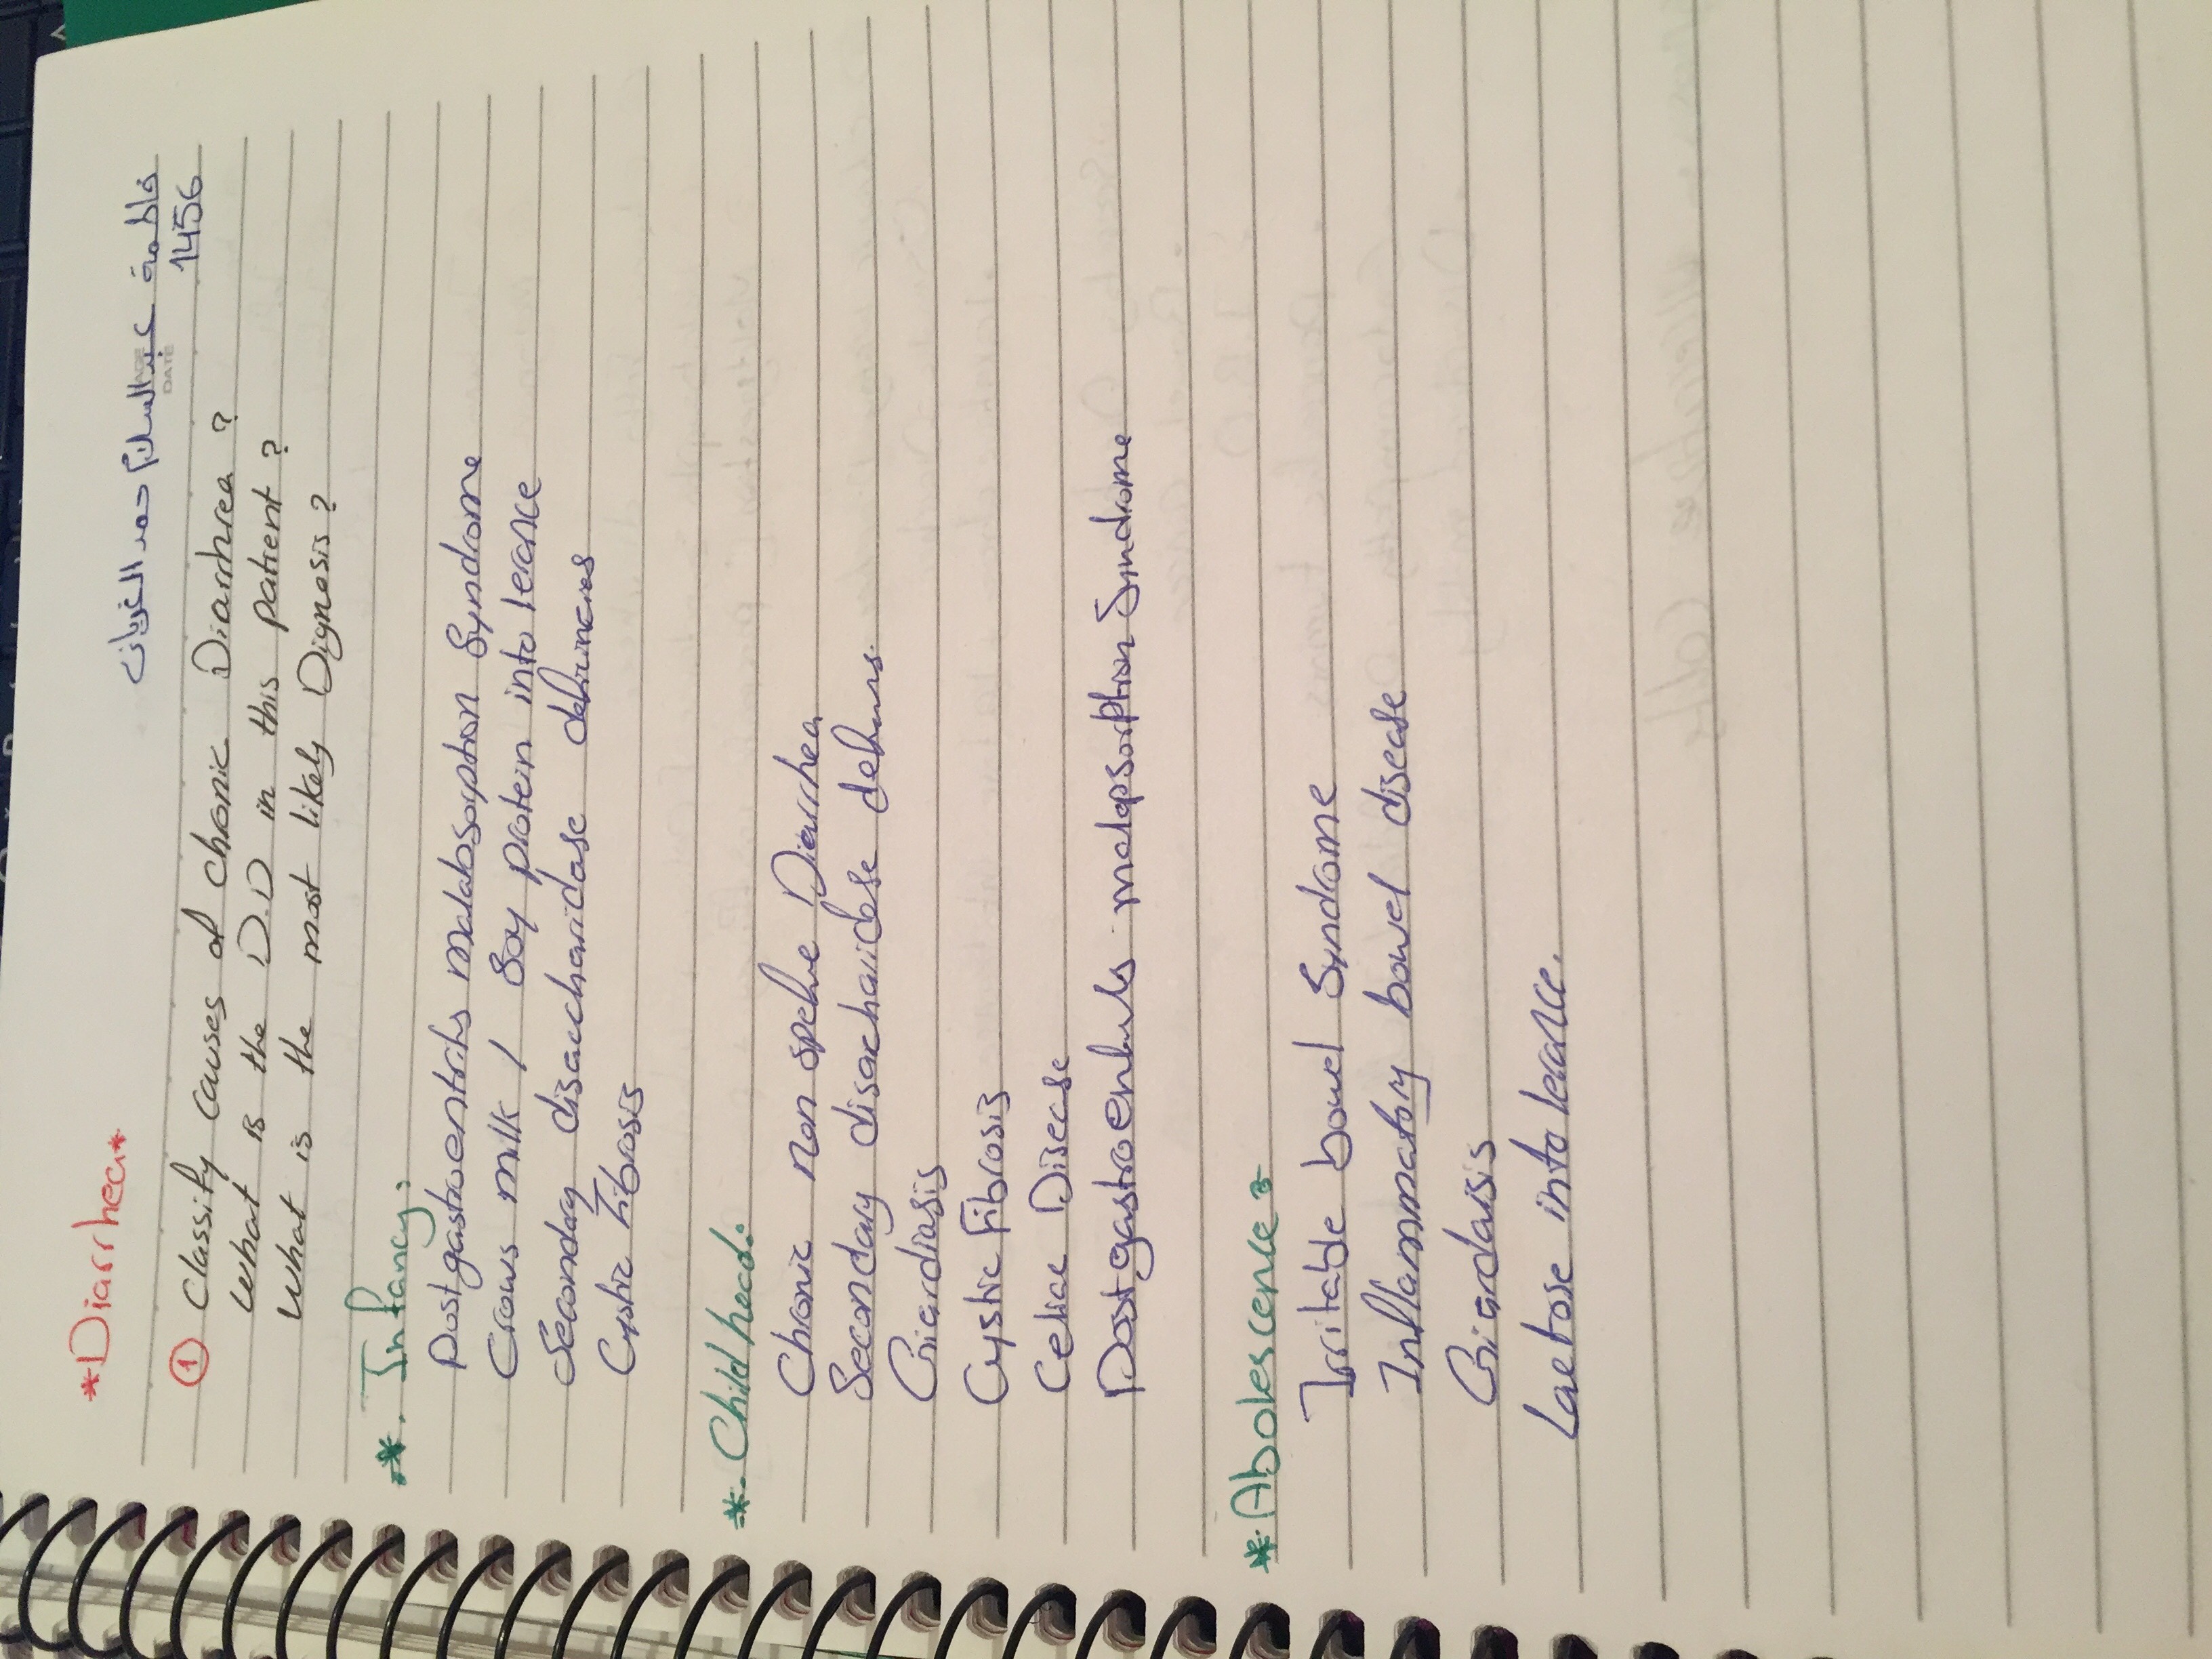 *Diarrhea*
فاطمة عبدالسلام حمد
1456
DATE
① Classify causes of chronic Diarrhea ?
what is the D.D in this patient ?
what is the most likely Dignosis ?
*. Infancy:
Postgastroentrits malabsorption Syndrome
Cows milk / Soy protein intolerance
Secondary disaccharidase
Cystic Fibrosis
*. Child hood:
Chronic non Diarrhea
Secondary disacharidase
Giardiasis
Cystic Fibrosis
Celiac Disease
Postgastroentrits malapsorption Sindrome
*. Abolescence :
Irritable bowel Syndrome
Inflammatory bowel disease
Giardaisis
Lactose intolerance.